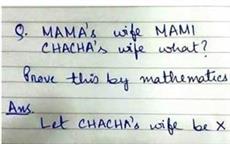 Q. MAMA's wife MAMI
CHACHA's wife what?
Prove this by mathematics
Ans.
Let CHACHA's wife be X